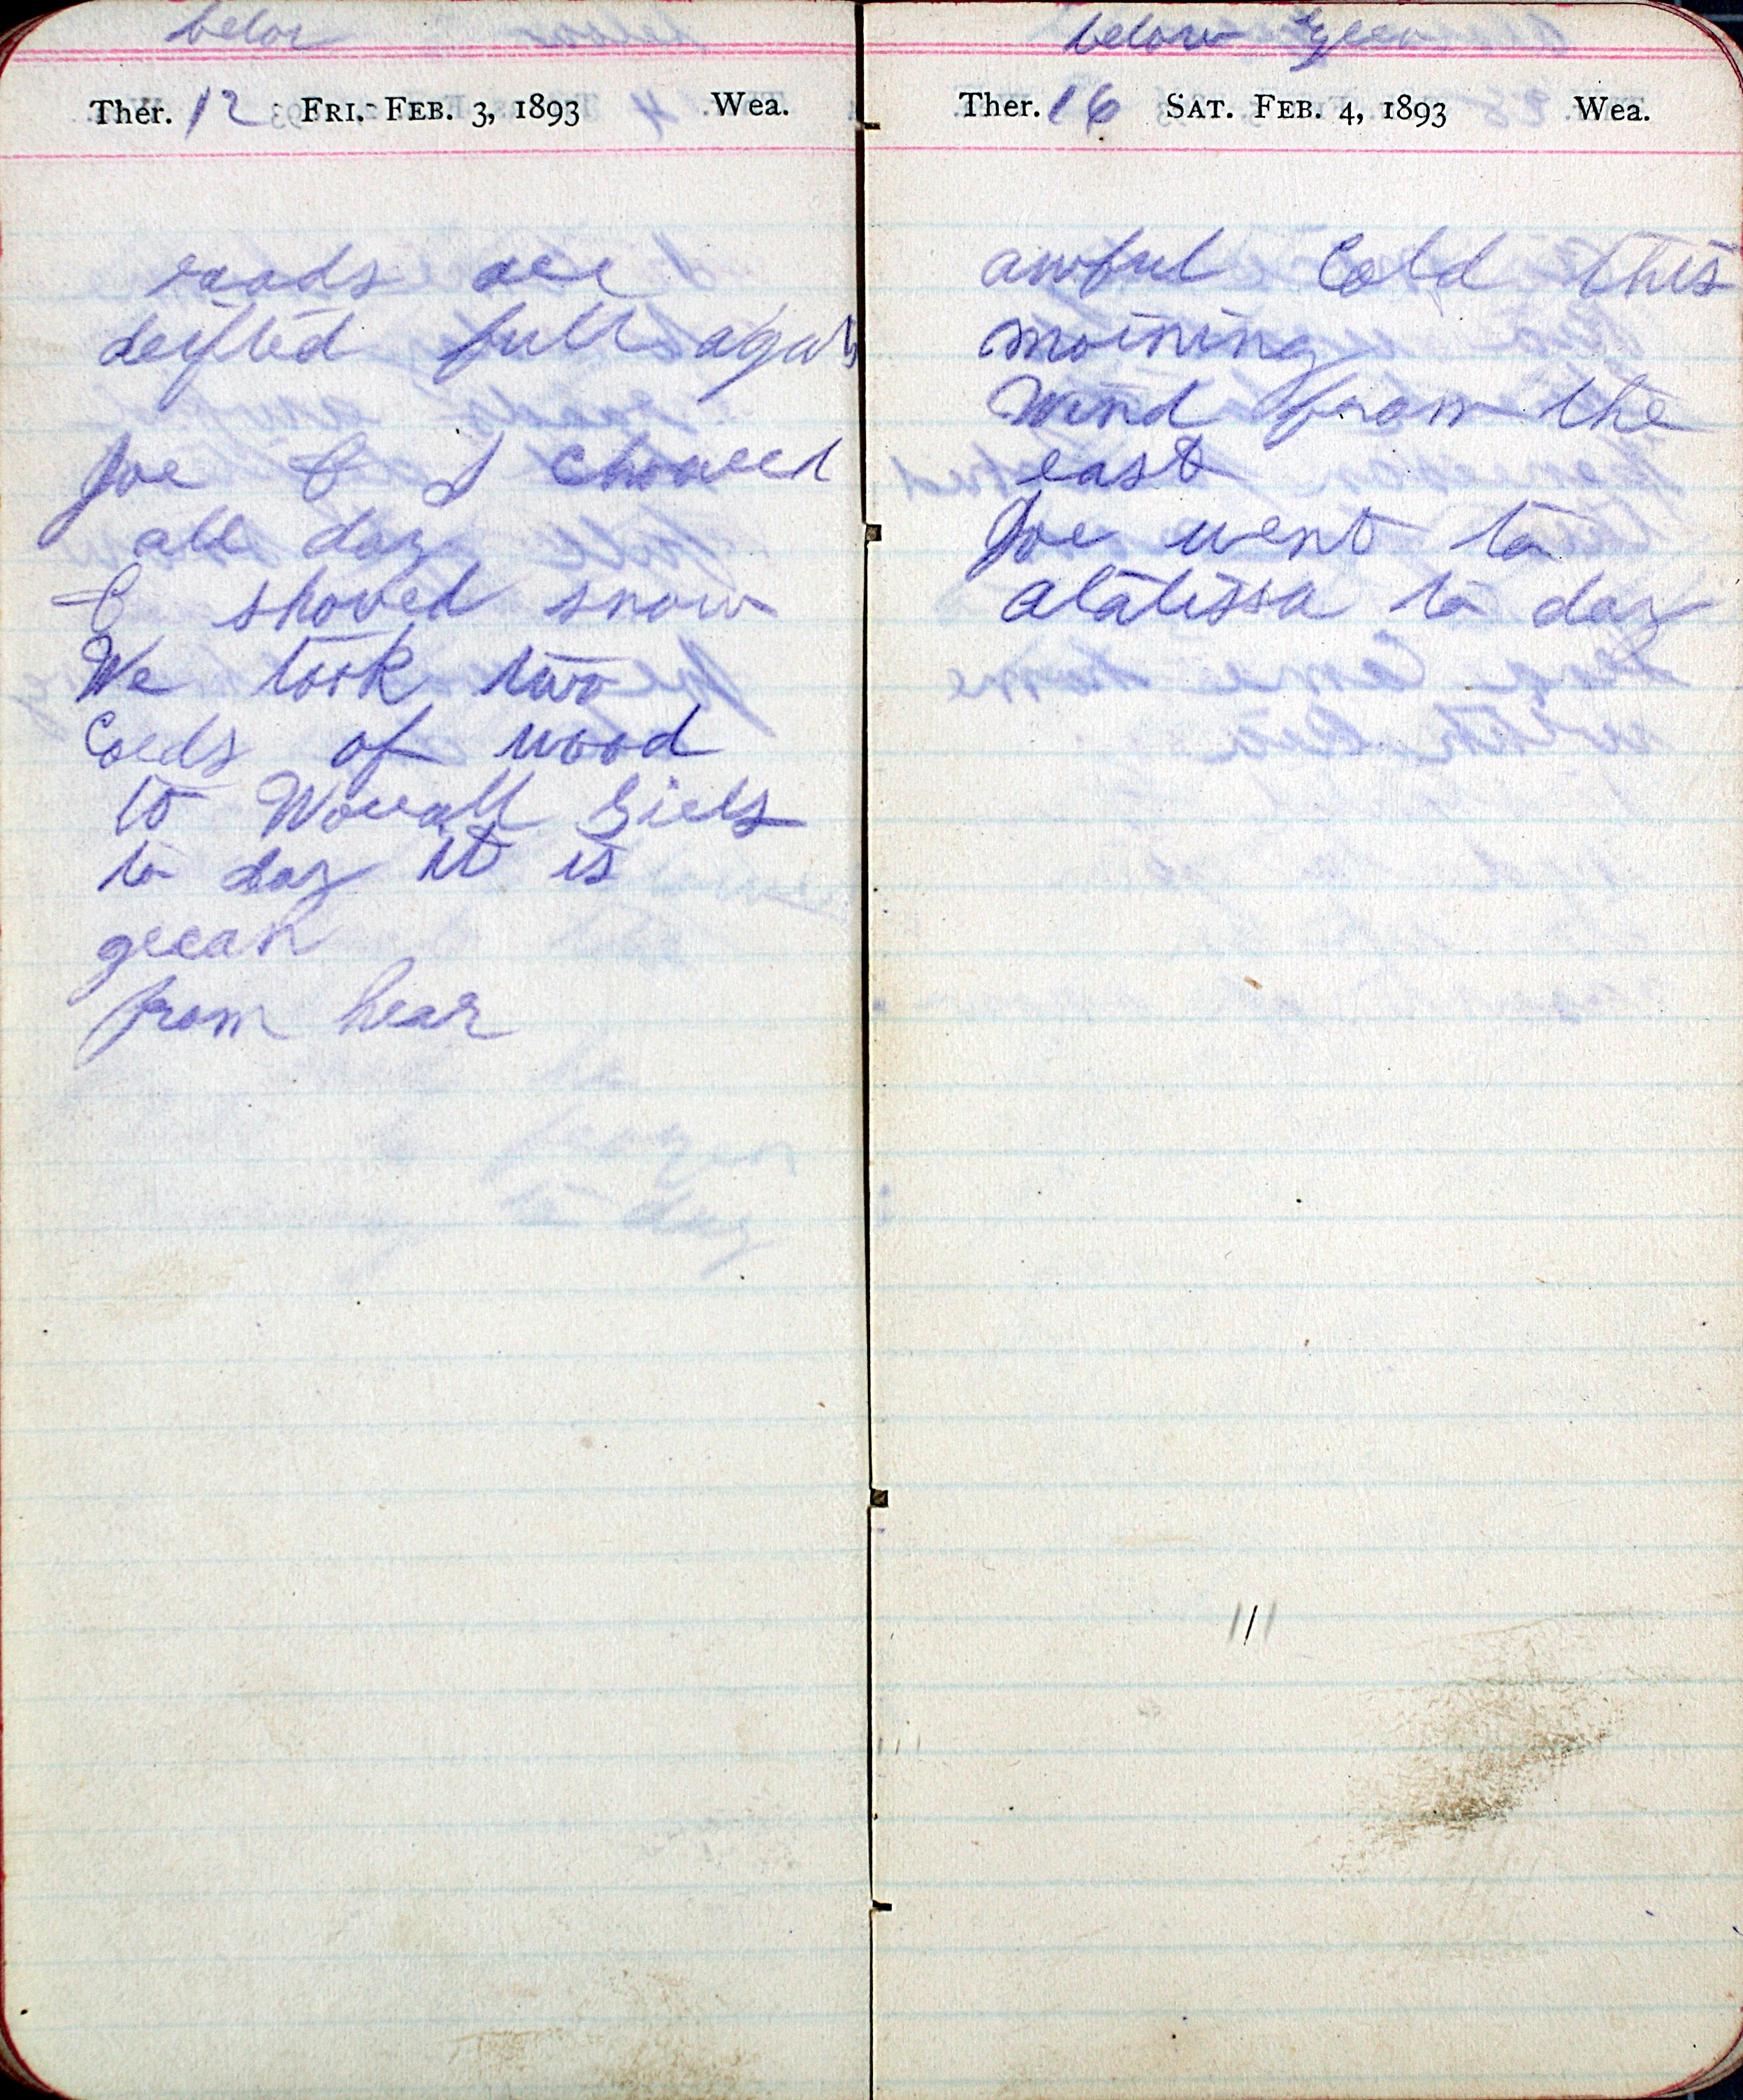 belor
Ther. 12 FRI. FEB. 3, 1893 Wea.
roads are
drifted full again
Joe & I choured
all day
& shoved snow
We took two
Cords of wood
to Worall Girls
to day it is
from hear
below Zero
Ther. 16 SAT. FEB. 4, 1893 Wea.
awful Cold this
morning
Wind from the
east
Joe went to
alatissa to day